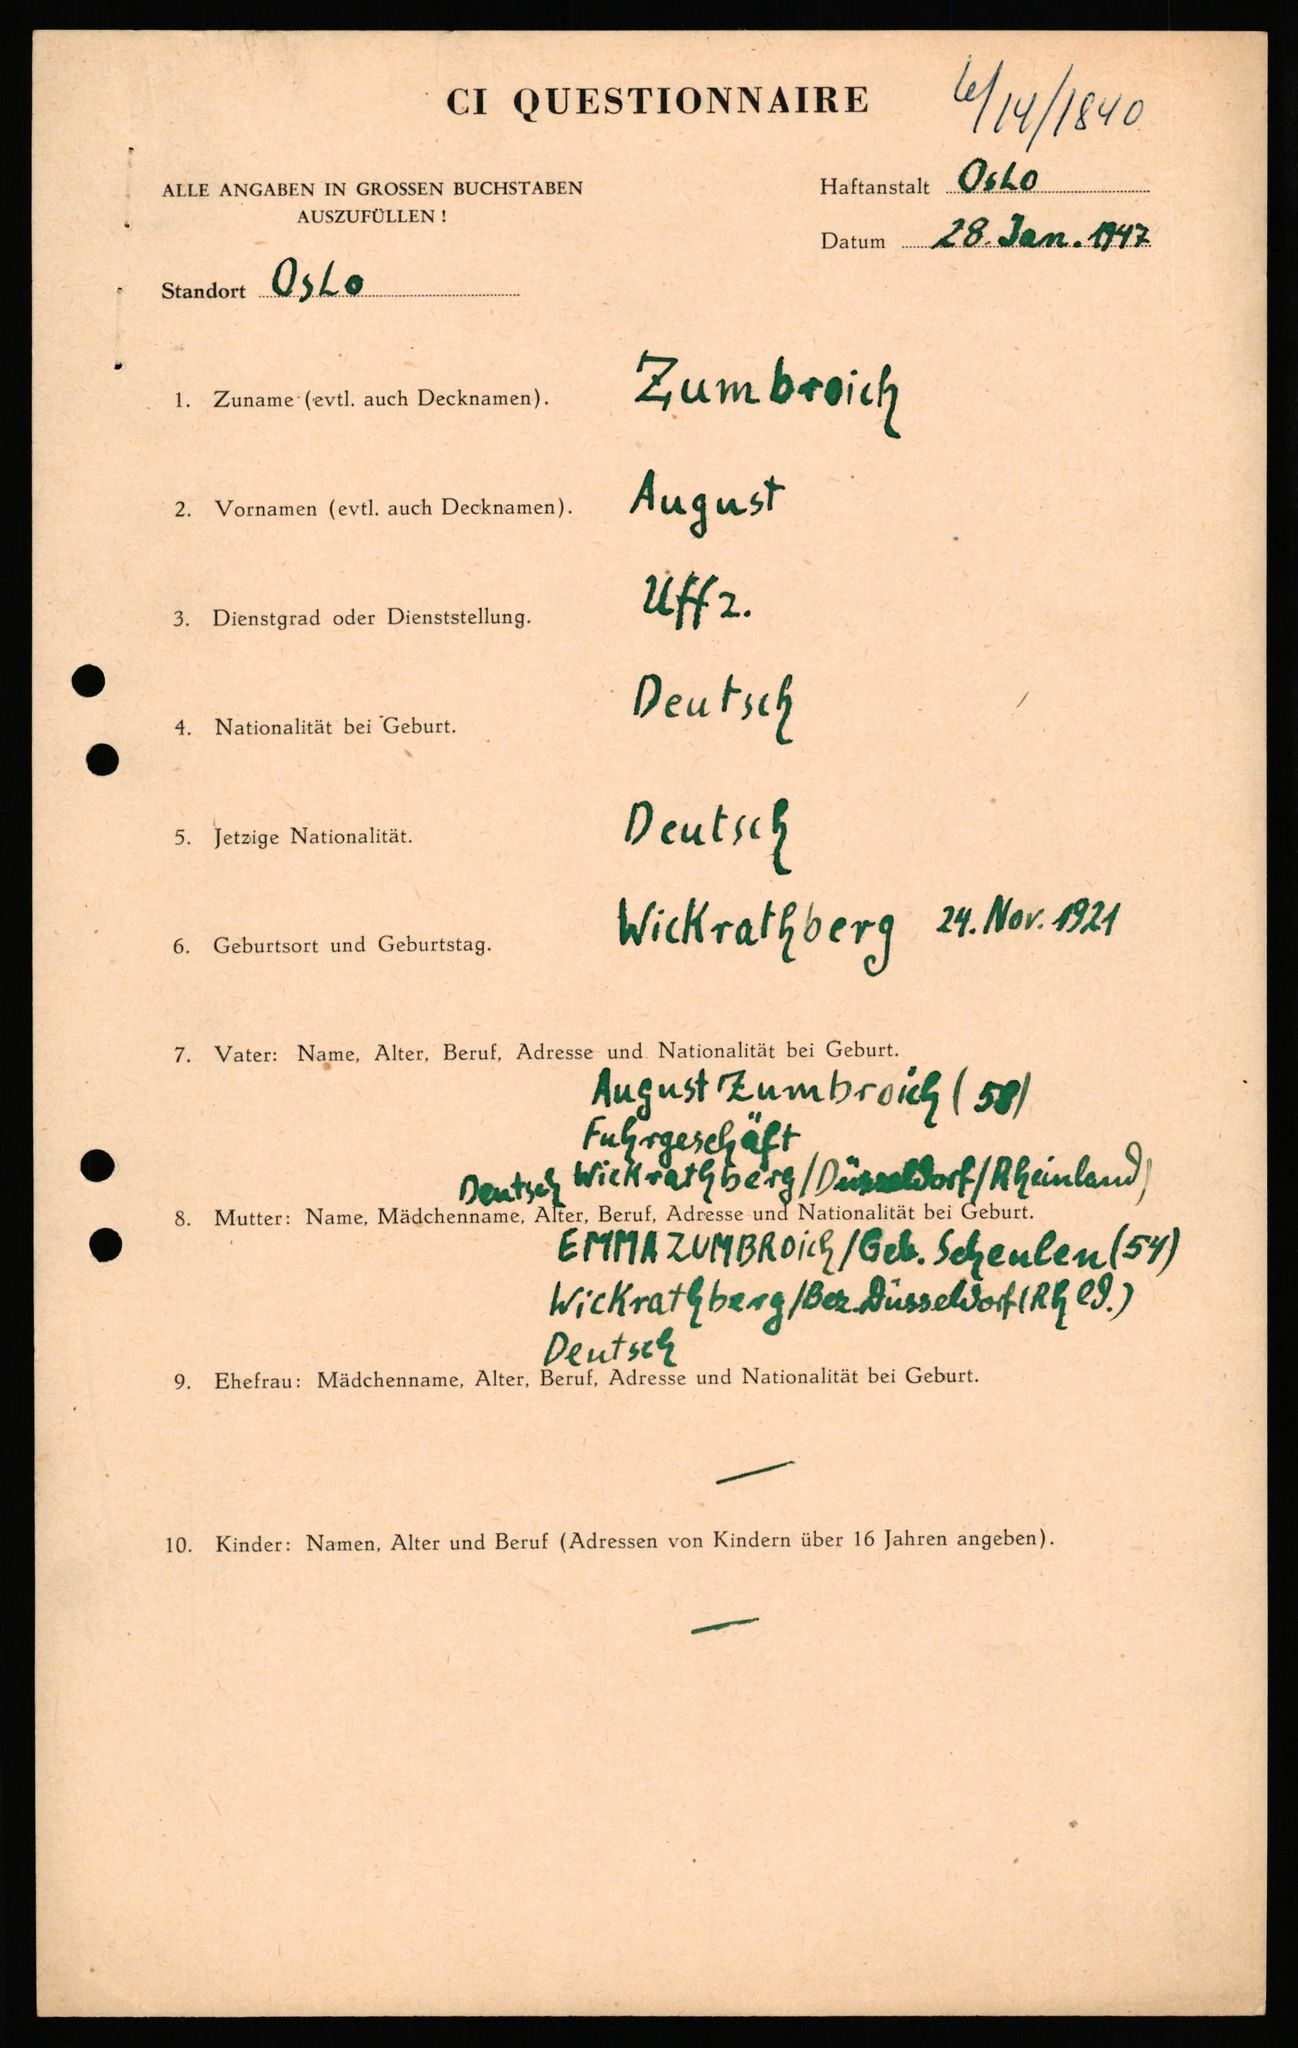 CI QUESTIONNAIRE
/14/1840
ALLE ANGABEN IN GROSSEN BUCHSTABEN
AUSZUFÜLLEN!
Haftanstalt Oslo
Datum 28. Jan. 1947
Standort Oslo
1. Zuname (evtl. auch Decknamen). Zumbroich
2. Vornamen (evtl. auch Decknamen). August
3. Dienstgrad oder Dienststellung. Uffz.
4. Nationalität bei Geburt. Deutsch
5. Jetzige Nationalität. Deutsch
6. Geburtsort und Geburtstag. Wickrathberg 24. Nov. 1921
7. Vater: Name, Alter, Beruf, Adresse und Nationalität bei Geburt.
August Zumbroich (58)
Fuhrgeschäft
Deutsch Wickrathberg/Düsseldorf/Rheinland)
8. Mutter: Name, Mädchenname, Alter, Beruf, Adresse und Nationalität bei Geburt.
EMMA ZUMBROich/Geb. Scheulen (54)
Wickrathberg/Bez. Düsseldorf (Rhld.)
Deutsch
9. Ehefrau: Mädchenname, Alter, Beruf, Adresse und Nationalität bei Geburt.
—
10. Kinder: Namen, Alter und Beruf (Adressen von Kindern über 16 Jahren angeben).
—